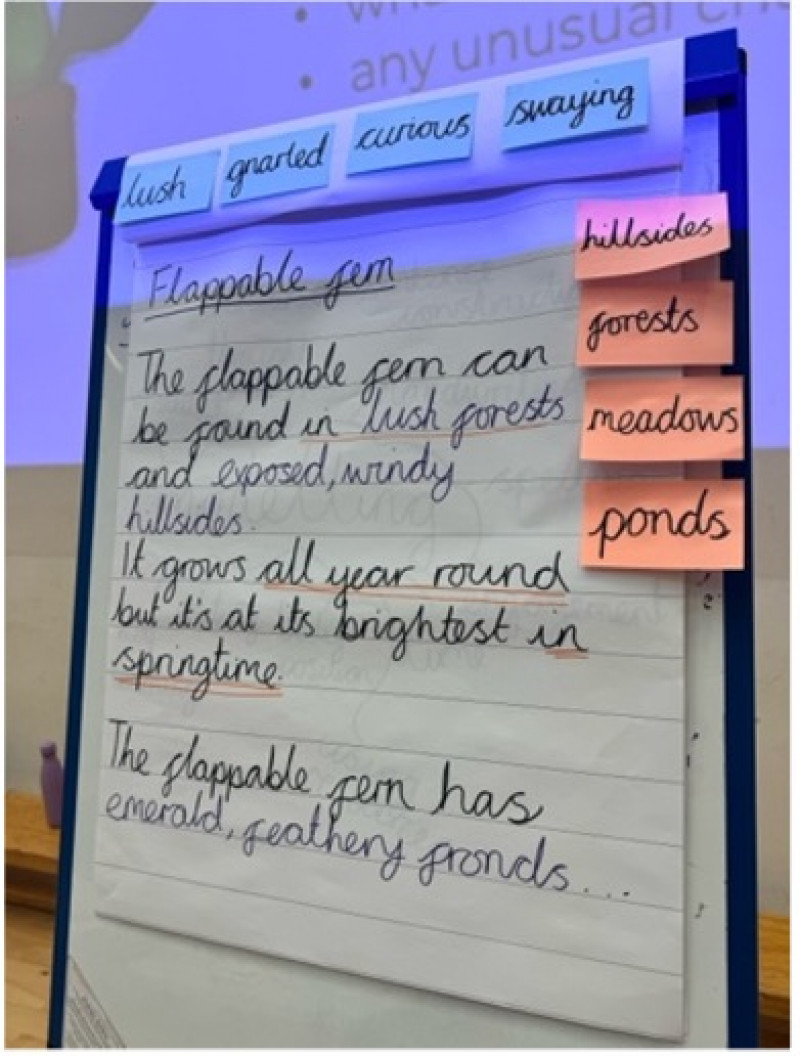 any unusual
lush gnarled curious swaying
hillsides
forests
meadows
ponds
Flappable fern
The flappable fern can
be found in lush forests
and exposed, windy
hillsides.
It grows all year round
but it's at its brightest in
springtime.
The flappable fern has
emerald, feathery fronds...